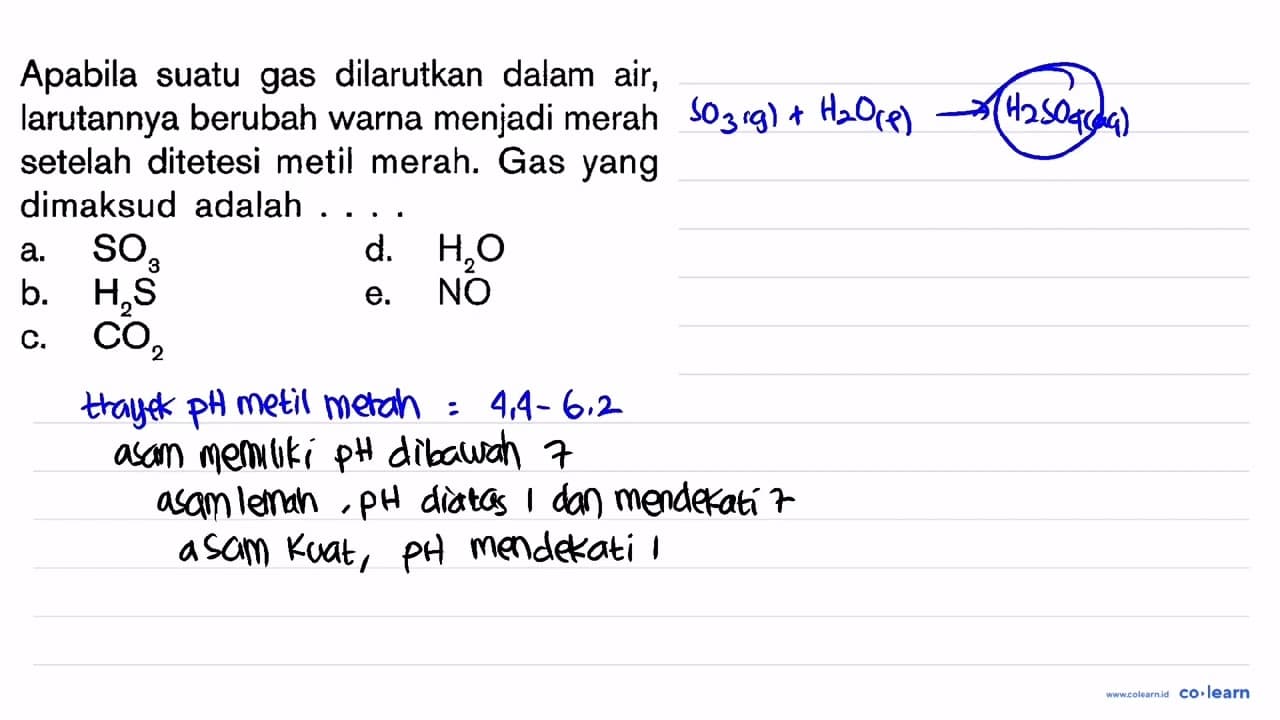 Apabila suatu gas dilarutkan dalam air,
larutannya berubah warna menjadi merah
setelah ditetesi metil merah. Gas yang
dimaksud adalah . . . .
a. SO₃
d. H₂O
b. H₂S
e. NO
c. CO₂
SO₃(g) + H₂O(l) → H₂SO₄(aq)
trayek pH metil merah = 4,4 - 6.2
asam memiliki pH dibawah 7
asam lemah, pH diatas 1 dan mendekati 7
asam kuat, pH mendekati 1
www.colearn.id co·learn